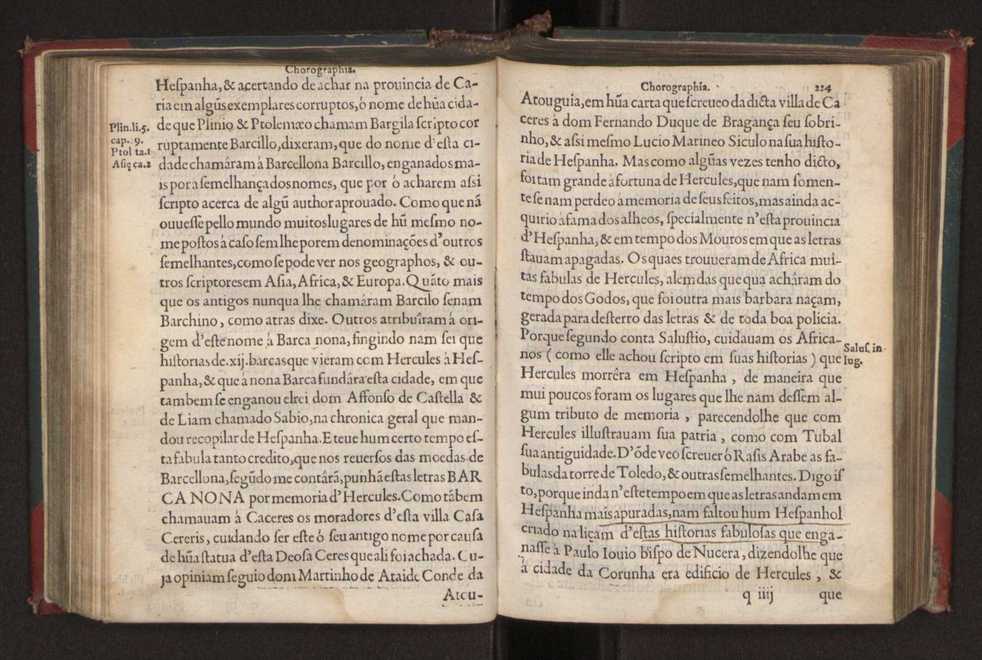 Chorographia.
Heſpanha, & acertando de achar na prouincia de Ca-
ria em algũs exemplares corruptos, ò nome de hũa cida-
Plin. li. 5.
cap. 9.
Ptol ta. 1
Aſię ca. 2
de que Plinio & Ptolemæo chamam Bargila ſcripto cor
ruptamente Barcillo, dixeram, que do nome d'eſta ci-
dade chamáram â Barcellona Barcillo, enganados ma-
is por a ſemelhança dos nomes, que por ò acharem aſsi
ſcripto acerca de algũ author aprouado. Como que nã
ouueſſe pello mundo muitos lugares de hũ meſmo no-
me poſtos à caſo ſem lhe porem denominações d'outros
ſemelhantes, como ſe pode ver nos geographos, & ou-
tros ſcriptores em Aſia, Africa, & Europa. Quãto mais
que os antigos nunqua lhe chamáram Barcilo ſenam
Barchino, como atras dixe. Outros atribuîram á ori-
gem d'eſte nome à Barca nona, fingindo nam ſei que
hiſtorias de .xij. barcas que vieram com Hercules à Heſ-
panha, & que à nona Barca fundára eſta cidade, em que
tambem ſe enganou elrei dom Affonſo de Caſtella &
de Liam chamado Sabio, na chronica geral que man-
dou recopilar de Heſpanha. E teue hum certo tempo eſ-
ta fabula tanto credito, que nos reuerſos das moedas de
Barcellona, ſegũdo me contárã, punhã eſtas letras BAR
CA NONA por memoria d'Hercules. Como tãbem
chamauam â Caceres os moradores d'eſta villa Caſa
Cereris, cuidando ſer eſte ò ſeu antigo nome por cauſa
de hũa ſtatua d'eſta Deoſa Ceres que ali foi achada. Cu-
ja opiniam ſeguio dom Martinho de Ataide Conde da
Atou-
Chorographia.
224
Atouguia, em hũa carta que ſcreueo da dicta villa de Ca
ceres à dom Fernando Duque de Bragança ſeu ſobri-
nho, & aſsi meſmo Lucio Marineo Siculo na ſua hiſto-
ria de Heſpanha. Mas como algũas vezes tenho dicto,
foi tam grande à fortuna de Hercules, que nam ſomen-
te ſe nam perdeo à memoria de ſeus feitos, mas ainda ac-
quirio à fama dos alheos, ſpecialmente n'eſta prouincia
d'Heſpanha, & em tempo dos Mouros em que as letras
ſtauam apagadas. Os quaes trouueram de Africa mui-
tas fabulas de Hercules, alem das que qua achâram do
tempo dos Godos, que foi outra mais barbara naçam,
gerada para deſterro das letras & de toda boa policia.
Porque ſegundo conta Saluſtio, cuidauam os Africa-
nos ( como elle achou ſcripto em ſuas hiſtorias ) que
Saluſ. in
Iug.
Hercules morrêra em Heſpanha , de maneira que
mui poucos foram os lugares que lhe nam deſſem al-
gum tributo de memoria , parecendolhe que com
Hercules illuſtrauam ſua patria , como com Tubal
ſua antiguidade. D'õde veo ſcreuer ò Raſis Arabe as fa-
bulas da torre de Toledo, & outras ſemelhantes. Digo iſ
to, porque inda n'eſte tempo em que as letras andam em
Heſpanha mais apuradas, nam faltou hum Heſpanhol
criado na liçam d'eſtas hiſtorias fabuloſas que enga-
naſſe à Paulo Iouio biſpo de Nucera, dizendolhe que
à cidade da Corunha era edificio de Hercules , &
q iiij
que